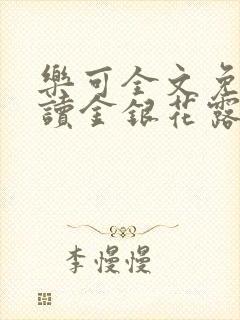 樂可全文免
讀金銀花露
李慢慢